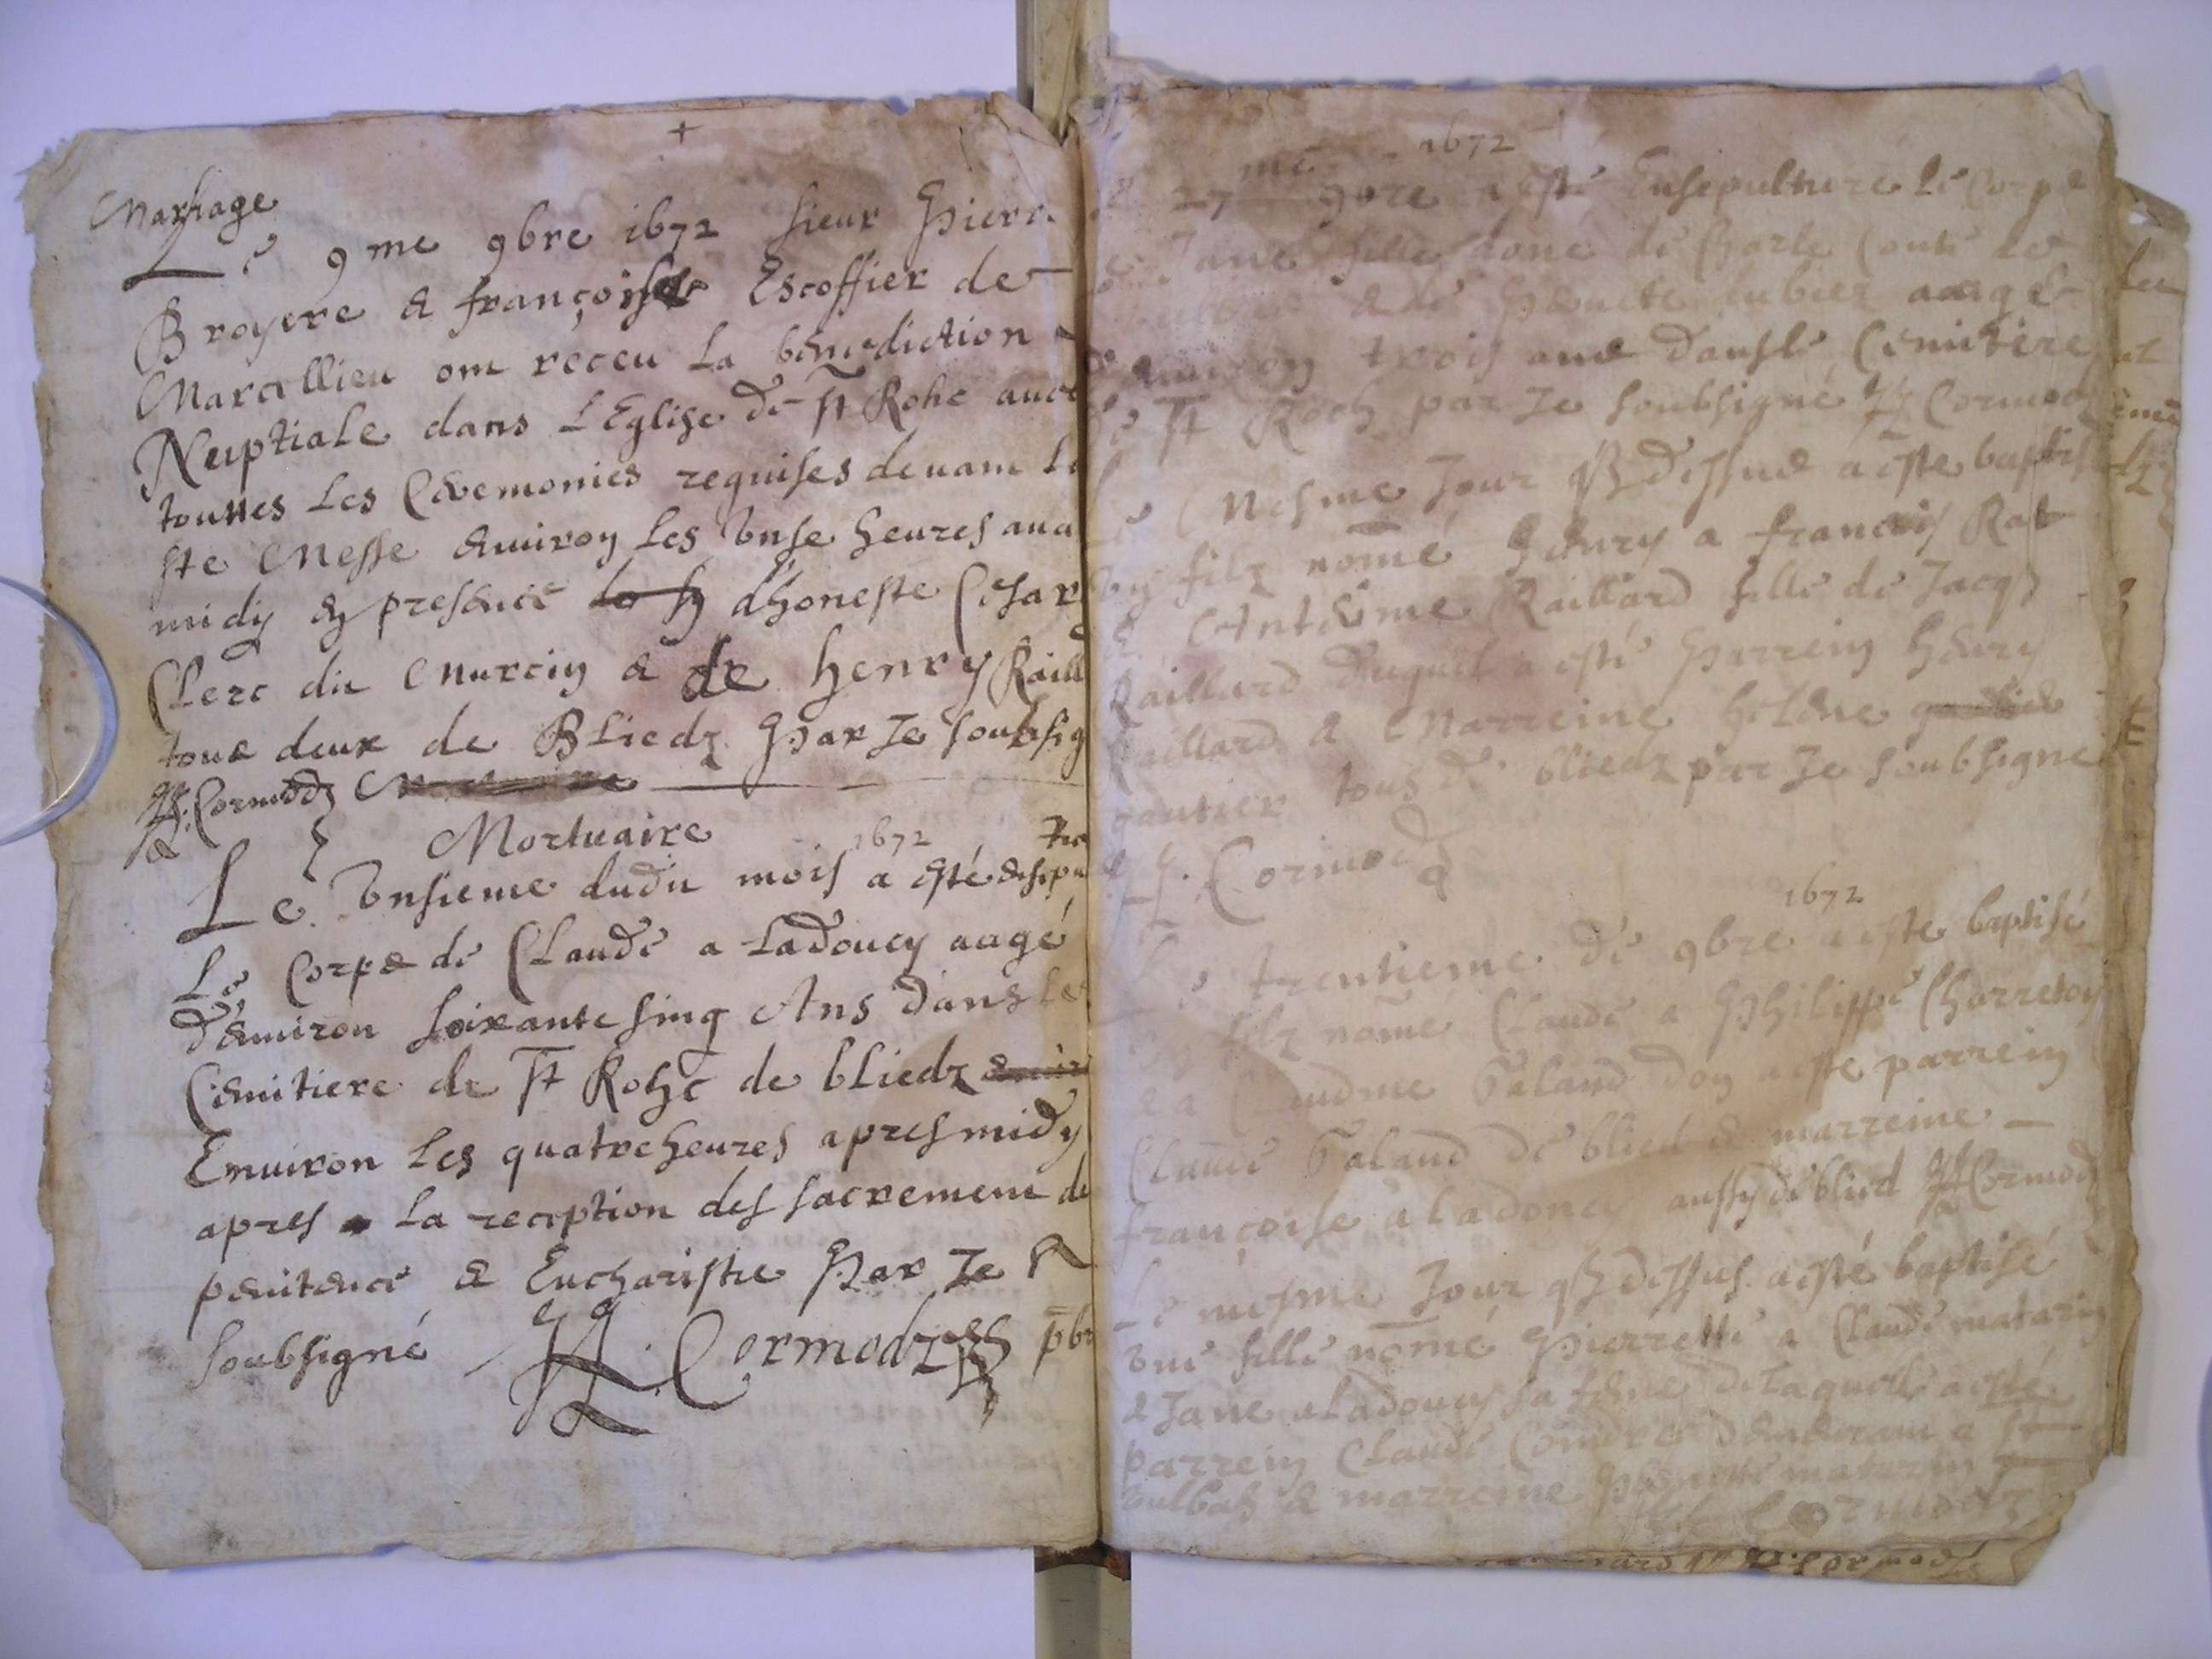 +
Mariage
Le 9me 9bre 1672 sieur Pierr
Broyere & françoise Escoffier de
Marcillieu ont receu la benediction
Nuptiale dans L'Eglise de st Rohc auec
touttes les Ceremonies requises deuant la
ste Messe enuiron les vnse heures aua
midy en presence d'honeste Cesar
Clerc dit Murcin & de henry Raill
tous deux de Bliedz Par Je soubsig
Cormodz
Mortuaire 1672
Le vnsieme dudit mois a esté ensepu
Le Corps de Claude a Ladoucy aagé
d'enuiron soixante sinq Ans dans le
Cimitiere de st Rohc de bliedz
Enuiron les quatre heures apres midy
apres la reception des sacrement de
penitence & Eucharistie Par Je
soubsigné Cormodz pbr
1672
27me 9bre a esté Ensepulturé le Corps
Jane fille done de Charle Conte
& de aagé
d'enuiron trois ans dans le Cimitere
de st Roch par Je soubsigné Cormod
Le Mesme Jour dessus a este baptisé
filz nomé henry a francois Rat
& Antheime Raillard fille de Jacq
Raillard duquel a esté Parrein henry
Raillard & Marreine helene
gautier tous de bliedz par Je soubsigné
Cormodz
1672
Le trentieme de 9bre a este baptisé
filz nomé Claude a Philippe Charreton
Claudine Galand don a este parrein
Claude Galand de blied & marreine
françoise a ladoucy aussy de blied Cormodz
Le mesme Jour dessus a esté baptisé
vne fille nomé Pierrette a Claude matarin
& Jane a Ladoucy sa feme de Laquelle a esté
parrein Claude
vulbas & marreine
Cormodz